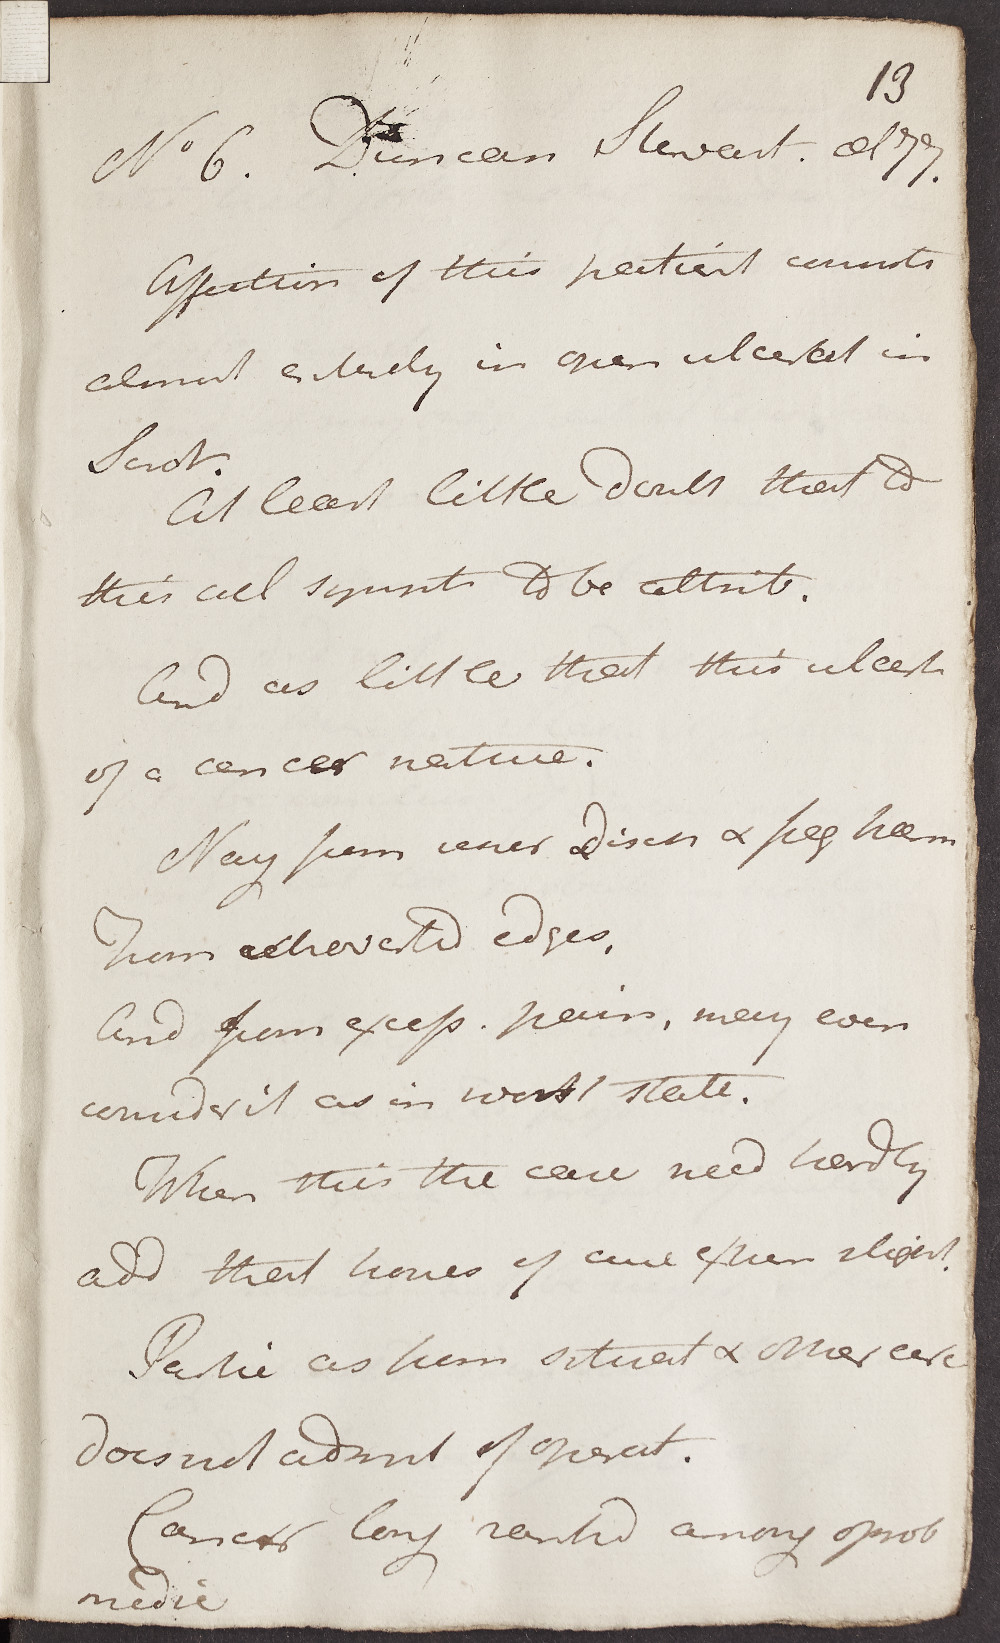 13
No 6. Duncan Stewart. aet 77.
Affection of this patient consists
almost entirely in open ulcerat in
Scrot.
At least little doubt that to
this all sympts to be attrib.
And as little that this ulcerat
of a cancer nature.
Nay from disch & freq haem
From retroverted edges,
And from excess. pain, may even
consider it as in worst state.
When this the case need hardly
add that hopes of cure extrem slight.
Partic as from situat & other circ
does not admit of operat.
Cancer long ranked among oprob
medic